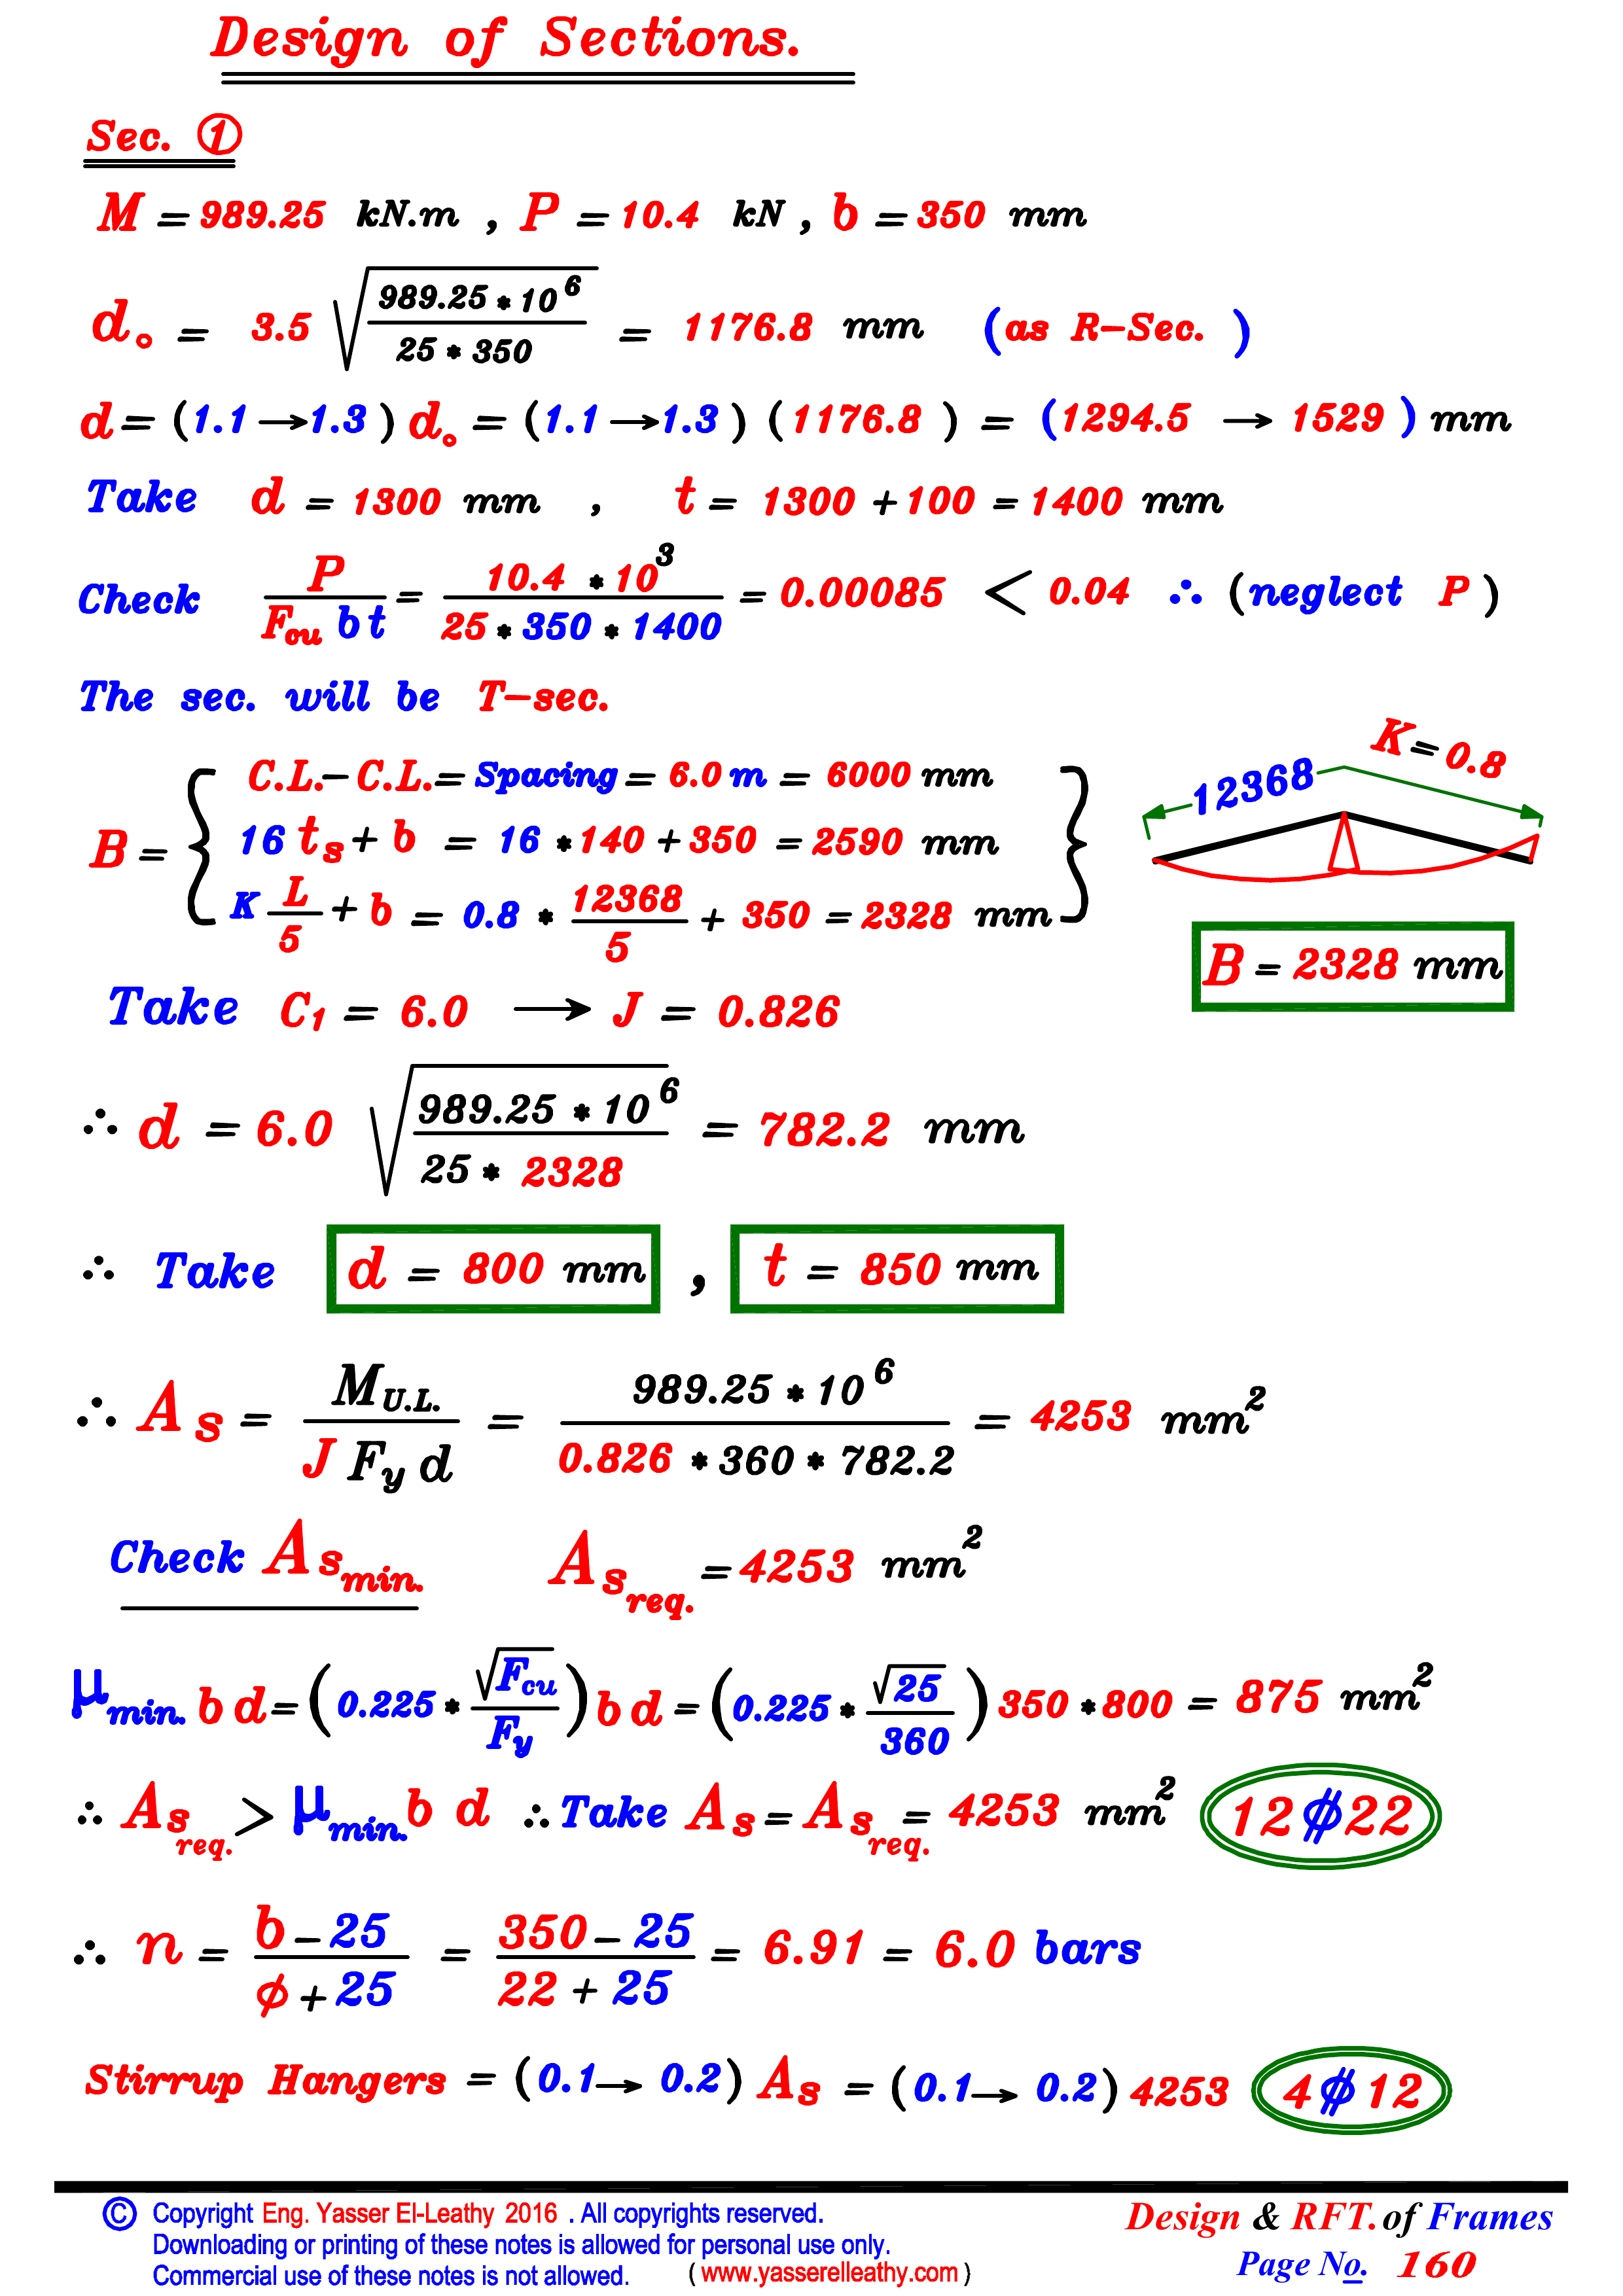 Design of Sections.
Sec. ①
M = 989.25 kN.m , P = 10.4 kN , b = 350 mm
d₀ = 3.5 √(989.25 * 10⁶ / 25 * 350) = 1176.8 mm (as R-Sec.)
d = (1.1 → 1.3) d₀ = (1.1 → 1.3) (1176.8) = (1294.5 → 1529) mm
Take d = 1300 mm , t = 1300 + 100 = 1400 mm
Check P / F_cu b t = 10.4 * 10³ / 25 * 350 * 1400 = 0.00085 < 0.04 ∴ (neglect P)
The sec. will be T-sec.
B = { C.L.-C.L. = Spacing = 6.0 m = 6000 mm
16 t_s + b = 16 * 140 + 350 = 2590 mm
K L/5 + b = 0.8 * 12368/5 + 350 = 2328 mm }
12368 K = 0.8
B = 2328 mm
Take C₁ = 6.0 → J = 0.826
∴ d = 6.0 √(989.25 * 10⁶ / 25 * 2328) = 782.2 mm
∴ Take d = 800 mm , t = 850 mm
∴ A_s = M_U.L. / J F_y d = 989.25 * 10⁶ / 0.826 * 360 * 782.2 = 4253 mm²
Check A_s min. A_s req. = 4253 mm²
μ_min. b d = (0.225 * √F_cu / F_y) b d = (0.225 * √25 / 360) 350 * 800 = 875 mm²
∴ A_s req. > μ_min. b d ∴ Take A_s = A_s req. = 4253 mm² 12 ⌀ 22
∴ n = b - 25 / ϕ + 25 = 350 - 25 / 22 + 25 = 6.91 = 6.0 bars
Stirrup Hangers = (0.1 → 0.2) A_s = (0.1 → 0.2) 4253 4 ⌀ 12
© Copyright Eng. Yasser El-Leathy 2016 . All copyrights reserved.
Downloading or printing of these notes is allowed for personal use only.
Commercial use of these notes is not allowed. ( www.yasserelleathy.com )
Design & RFT. of Frames
Page No. 160